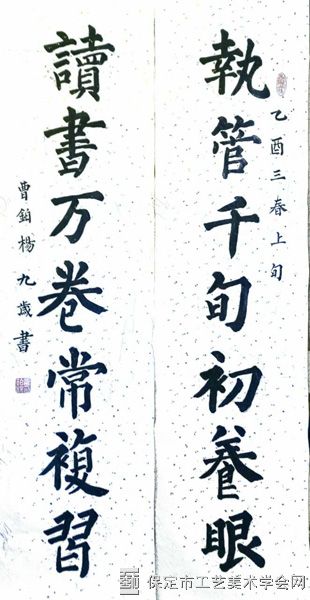 乙酉三春上旬
執管千旬初養眼
讀書万卷常複習
曹鉑楊九歲書
保定市工艺美术学会网